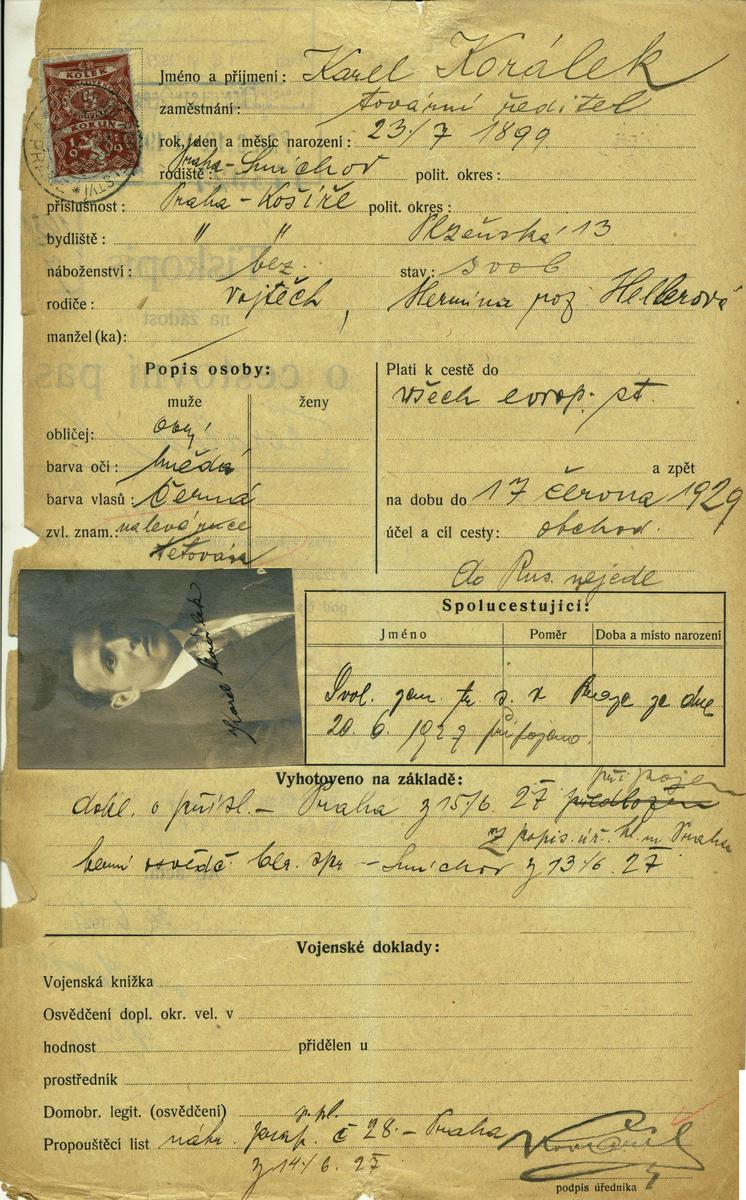 KOLEK
Jméno a příjmení: Karel Korálek
zaměstnání: tovární ředitel
rok, den a měsíc narození: 23/7 1899
rodiště: Praha-Smíchov polit. okres:
příslušnost: Praha-Košíře polit. okres:
bydliště: " " Plzeňská 13
náboženství: bez stav: svob
rodiče: Vojtěch, Hermína roz. Hellerová
manžel(ka):
Popis osoby:
muže ženy
obličej: obyč
barva očí: hnědá
barva vlasů: černá
zvl. znam.: na levé ruce
tetování
Platí k cestě do
všech evrop. st.
a zpět
na dobu do 17 června 1929
účel a cíl cesty: obchod.
do Rus. nejede
Spolucestující:
Jméno Poměr Doba a místo narození
Svol. zem. tr. s. v Praze ze dne
20. 6. 1927 připojeno.
Karel Korálek
Vyhotoveno na základě:
připojen
domov. o přísl. - Praha z 15/6. 27 předložen
z popis. úř. hl. m. Praha
berní osvědč. ber. spr. - Smíchov z 13/6. 27
Vojenské doklady:
Vojenská knížka
Osvědčení dopl. okr. vel. v
hodnost přidělen u
prostředník
Domobr. legit. (osvědčení) p. pl.
Propouštěcí list náhr. prap. č 28. - Praha
z 14/6. 27
podpis úředníka